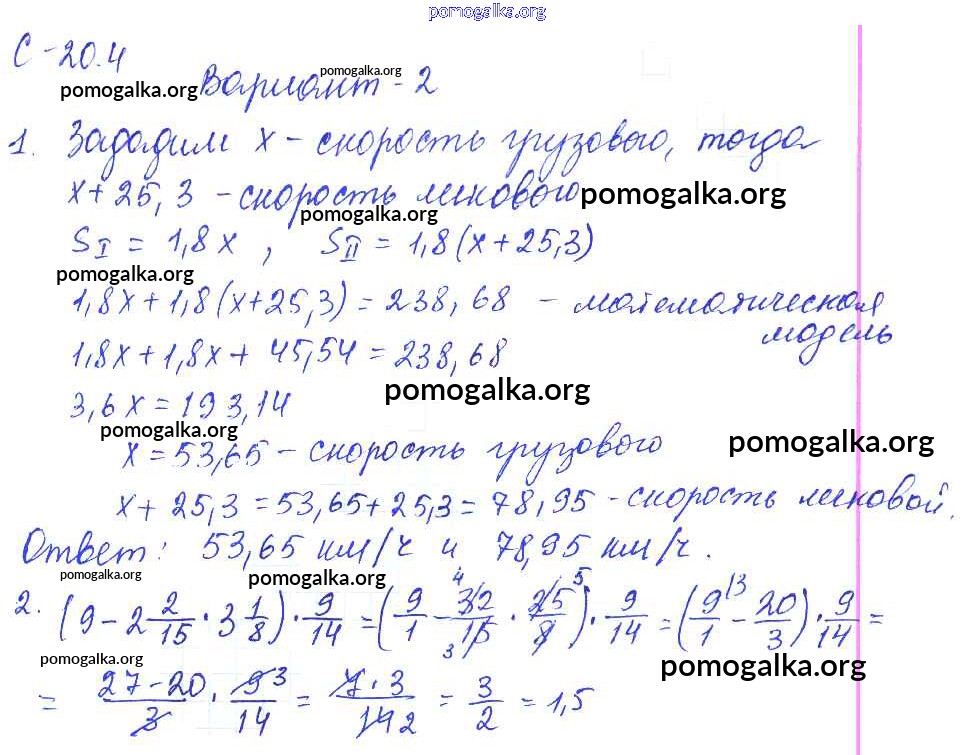 pomogalka.org
С-20.4
pomogalka.org Вариант-2 pomogalka.org
1. Зададим x – скорость грузового, тогда
x + 25,3 – скорость легкового pomogalka.org
pomogalka.org
S_I = 1,8x , S_II = 1,8(x+25,3)
pomogalka.org
1,8x + 1,8(x+25,3) = 238,68 – математическая
модель
1,8x + 1,8x + 45,54 = 238,68
pomogalka.org
3,6x = 193,14
pomogalka.org
x = 53,65 – скорость грузового pomogalka.org
x + 25,3 = 53,65 + 25,3 = 78,95 – скорость легковой.
Ответ: 53,65 км/ч и 78,95 км/ч.
pomogalka.org pomogalka.org
2. (9 - 2 2/15 · 3 1/8) · 9/14 = (9/1 - 32/15 · 25/8) · 9/14 = (9/1 - 20/3) · 9/14 =
pomogalka.org pomogalka.org
= (27-20)/3 · 9/14 = (7·3)/14 = 3/2 = 1,5